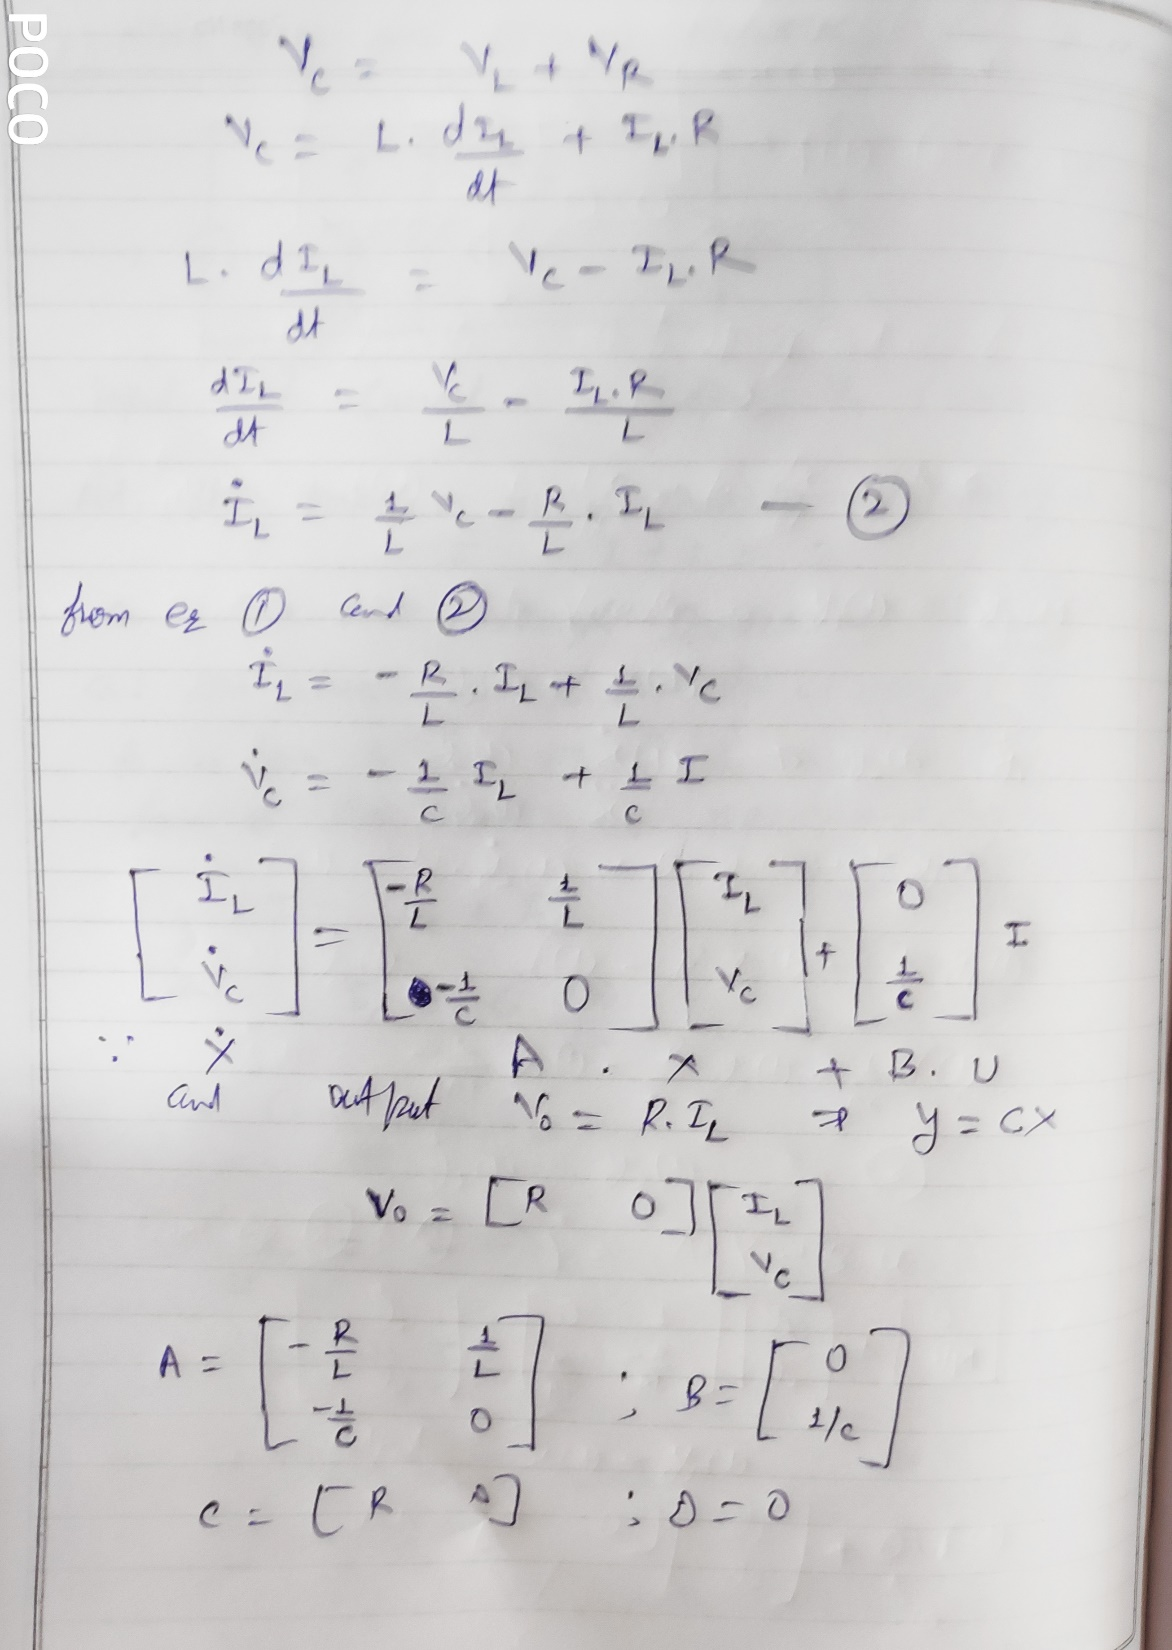 POCO
V_C = V_L + V_R
V_C = L. dI_L/dt + I_L.R
L. dI_L/dt = V_C - I_L.R
dI_L/dt = V_C/L - I_L.R/L
İ_L = 1/L V_C - R/L . I_L — ②
from eq ① and ②
İ_L = -R/L . I_L + 1/L . V_C
V̇_C = -1/C I_L + 1/C I
[İ_L; V̇_C] = [-R/L 1/L; -1/C 0] [I_L; V_C] + [0; 1/C] I
∵ Ẋ A . X + B. U
and output V_0 = R.I_L ⇒ y = CX
V_0 = [R 0] [I_L; V_C]
A = [-R/L 1/L; -1/C 0] ; B = [0; 1/C]
C = [R 0] ; D = 0